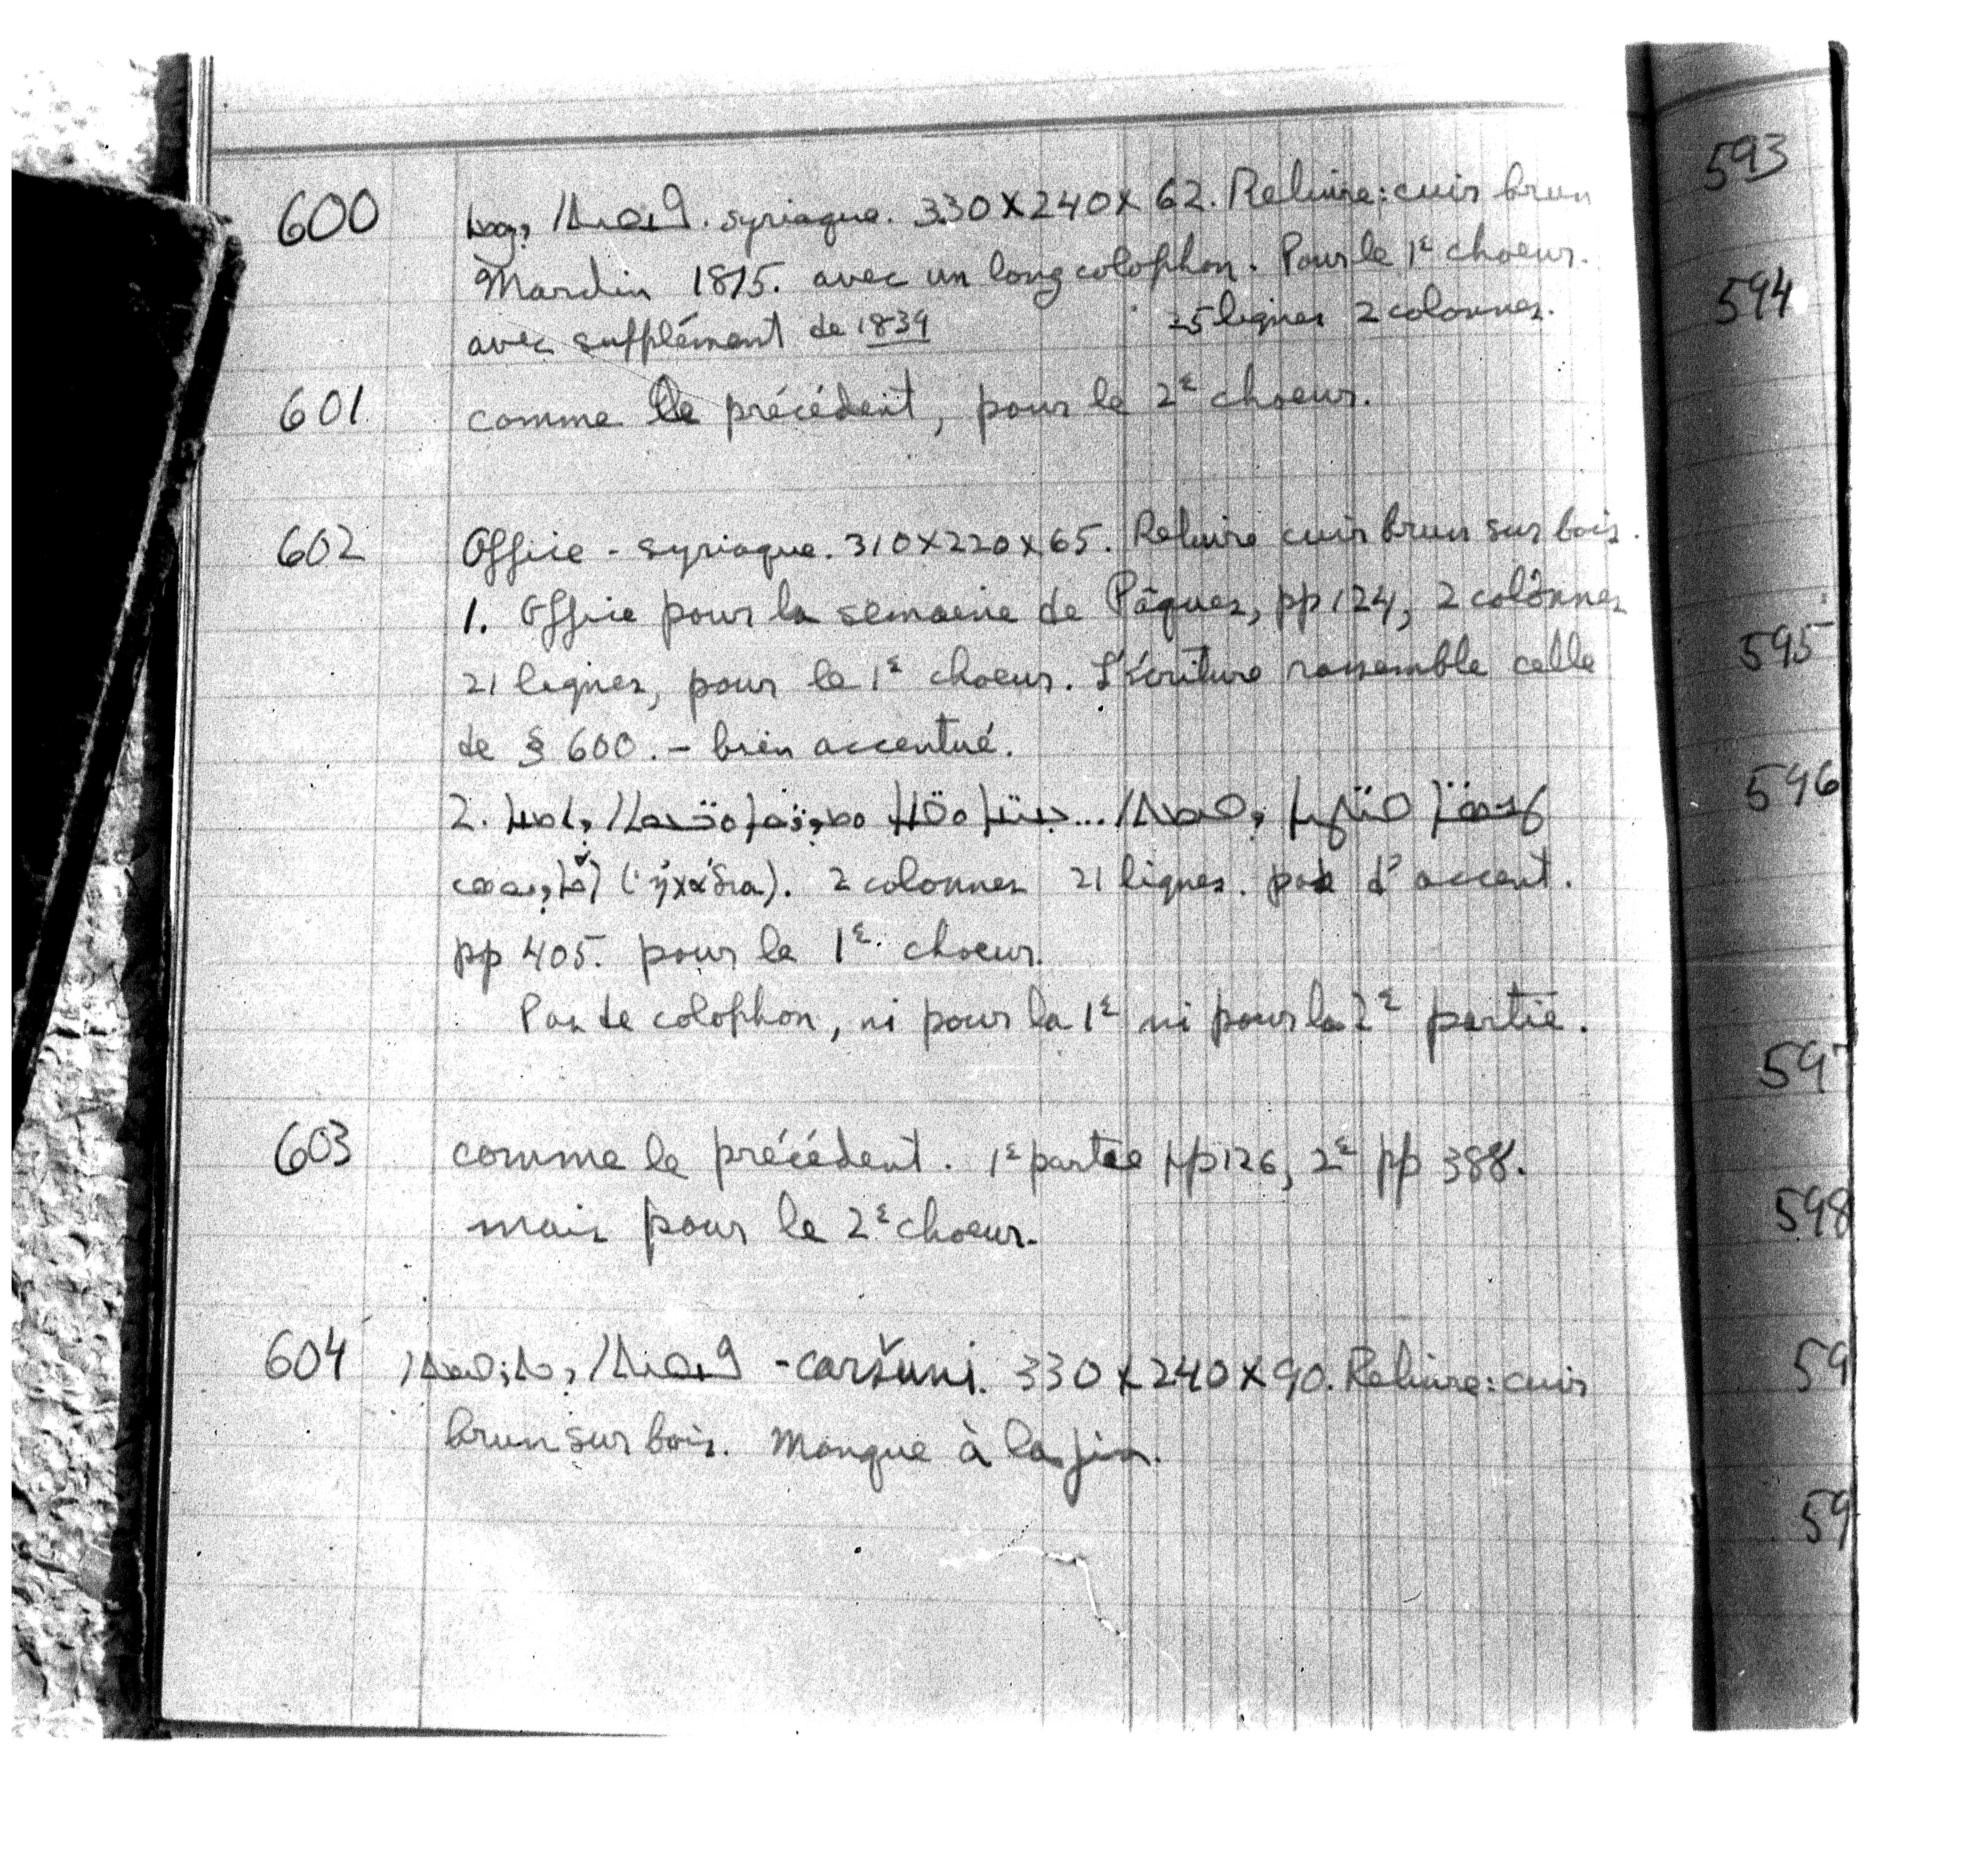 600 ܦܢܩܝܬܐ ܕܨܘܡܐ. syriaque. 330x240x62. Reliure: cuir brun
Mardin 1815. avec un long colophon. Pour le 1ᵉ choeur.
avec supplément de 1839 25 lignes 2 colonnes.
601 comme le précédent, pour le 2ᵉ choeur.
602 Office - syriaque. 310x220x65. Reliure cuir brun sur bois.
1. Office pour la semaine de Pâques, pp 124, 2 colonnes
21 lignes, pour le 1ᵉ choeur. L'écriture rassemble celle
de § 600. - bien accentué.
2.
2 colonnes 21 lignes. pas d'accent.
pp 405. pour le 1ᵉ choeur.
Pas de colophon, ni pour la 1ᵉ ni pour la 2ᵉ partie.
603 comme le précédent. 1ᵉ partie pp 126, 2ᵉ pp 388.
mais pour le 2ᵉ choeur.
604 - caršuni. 330x240x90. Reliure: cuir
brun sur bois. Manque à la fin.
593
594
595
596
597
598
59
59